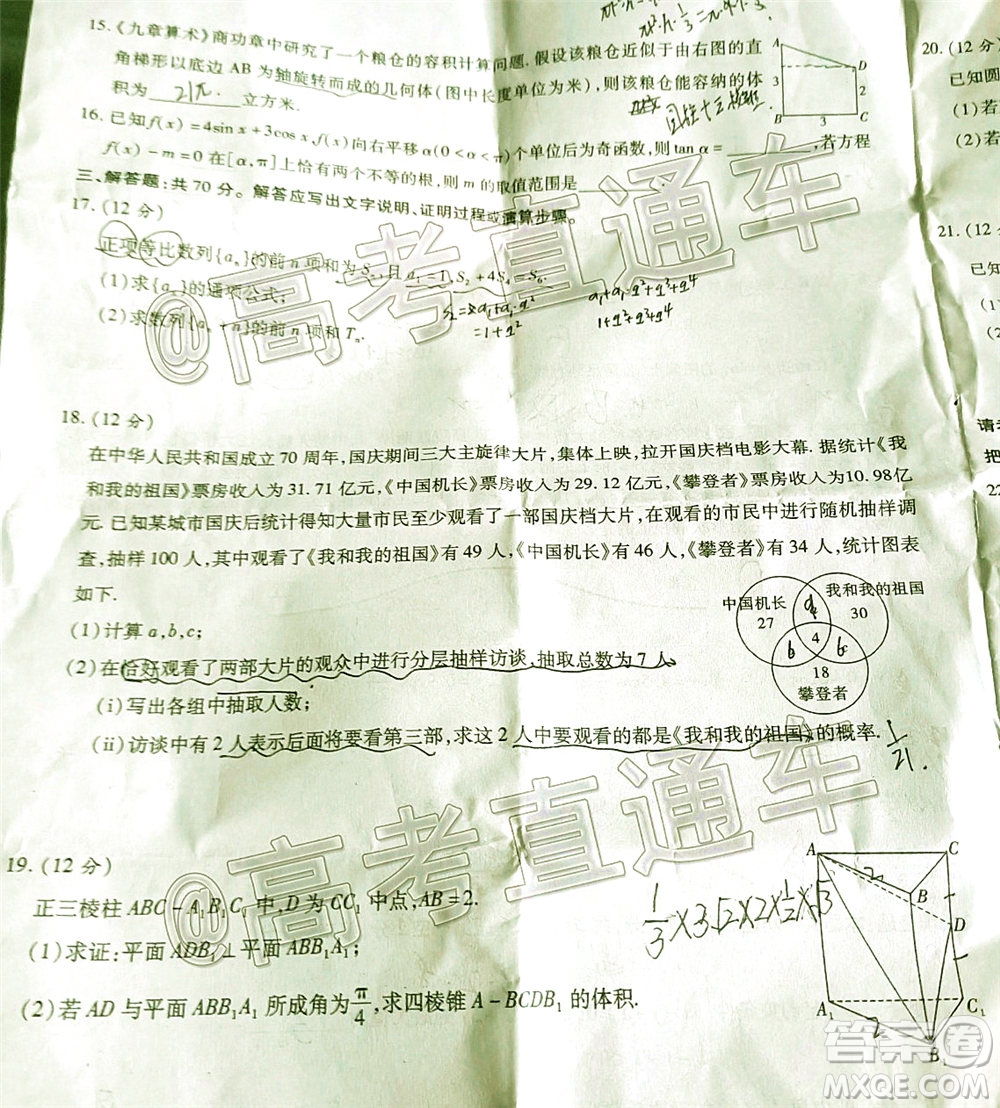 πr²·h·1/3=π·9·1·1/3
15.《九章算术》商功章中研究了一个粮仓的容积计算问题. 假设该粮仓近似于由右图的直
角梯形以底边 AB 为轴旋转而成的几何体(图中长度单位为米), 则该粮仓能容纳的体
积为 21π 立方米.
圆柱+
A
D
3
2
B
3
C
16. 已知 f(x)=4sinx+3cosx, f(x)向右平移 α(0<α<π)个单位后为奇函数, 则 tanα=______, 若方程
f(x)-m=0 在[α,π]上恰有两个不等的根, 则 m 的取值范围是______.
三、解答题: 共 70 分。解答应写出文字说明、证明过程或演算步骤。
17. (12 分)
正项等比数列{aₙ}的前 n 项和为 Sₙ, 且 a₁=1, S₂+4S₄=S₆.
(1)求{aₙ}的通项公式;
(2)求数列{aₙ+n}的前 n 项和 Tₙ.
=1+q²
1+q²+q³+q⁴
18. (12 分)
在中华人民共和国成立 70 周年, 国庆期间三大主旋律大片, 集体上映, 拉开国庆档电影大幕. 据统计《我
和我的祖国》票房收入为 31.71 亿元, 《中国机长》票房收入为 29.12 亿元, 《攀登者》票房收入为10.98亿
元. 已知某城市国庆后统计得知大量市民至少观看了一部国庆档大片, 在观看的市民中进行随机抽样调
查, 抽样 100 人, 其中观看了《我和我的祖国》有 49 人, 《中国机长》有 46 人, 《攀登者》有 34 人, 统计图表
如下.
中国机长
27
我和我的祖国
30
4
b
18
攀登者
(1)计算 a,b,c;
(2)在恰好观看了两部大片的观众中进行分层抽样访谈, 抽取总数为 7 人.
(i)写出各组中抽取人数;
(ii)访谈中有 2 人表示后面将要看第三部, 求这 2 人中要观看的都是《我和我的祖国》的概率.
1/21.
19. (12 分)
正三棱柱 ABC-A₁B₁C₁ 中, D 为 CC₁ 中点, AB=2.
(1)求证: 平面 ADB₁⊥平面 ABB₁A₁;
(2)若 AD 与平面 ABB₁A₁ 所成角为 π/4, 求四棱锥 A-BCDB₁ 的体积.
1/3×3√2×2×1/2×√3
A
C
B
D
A₁
C₁
B₁
2
20. (12 分)
已知圆
(1)若
(2)若
21. (12
已知
(1)
(2)
请
把
22
@高考直通车
@高考直通车
答案圈
MXQE.COM